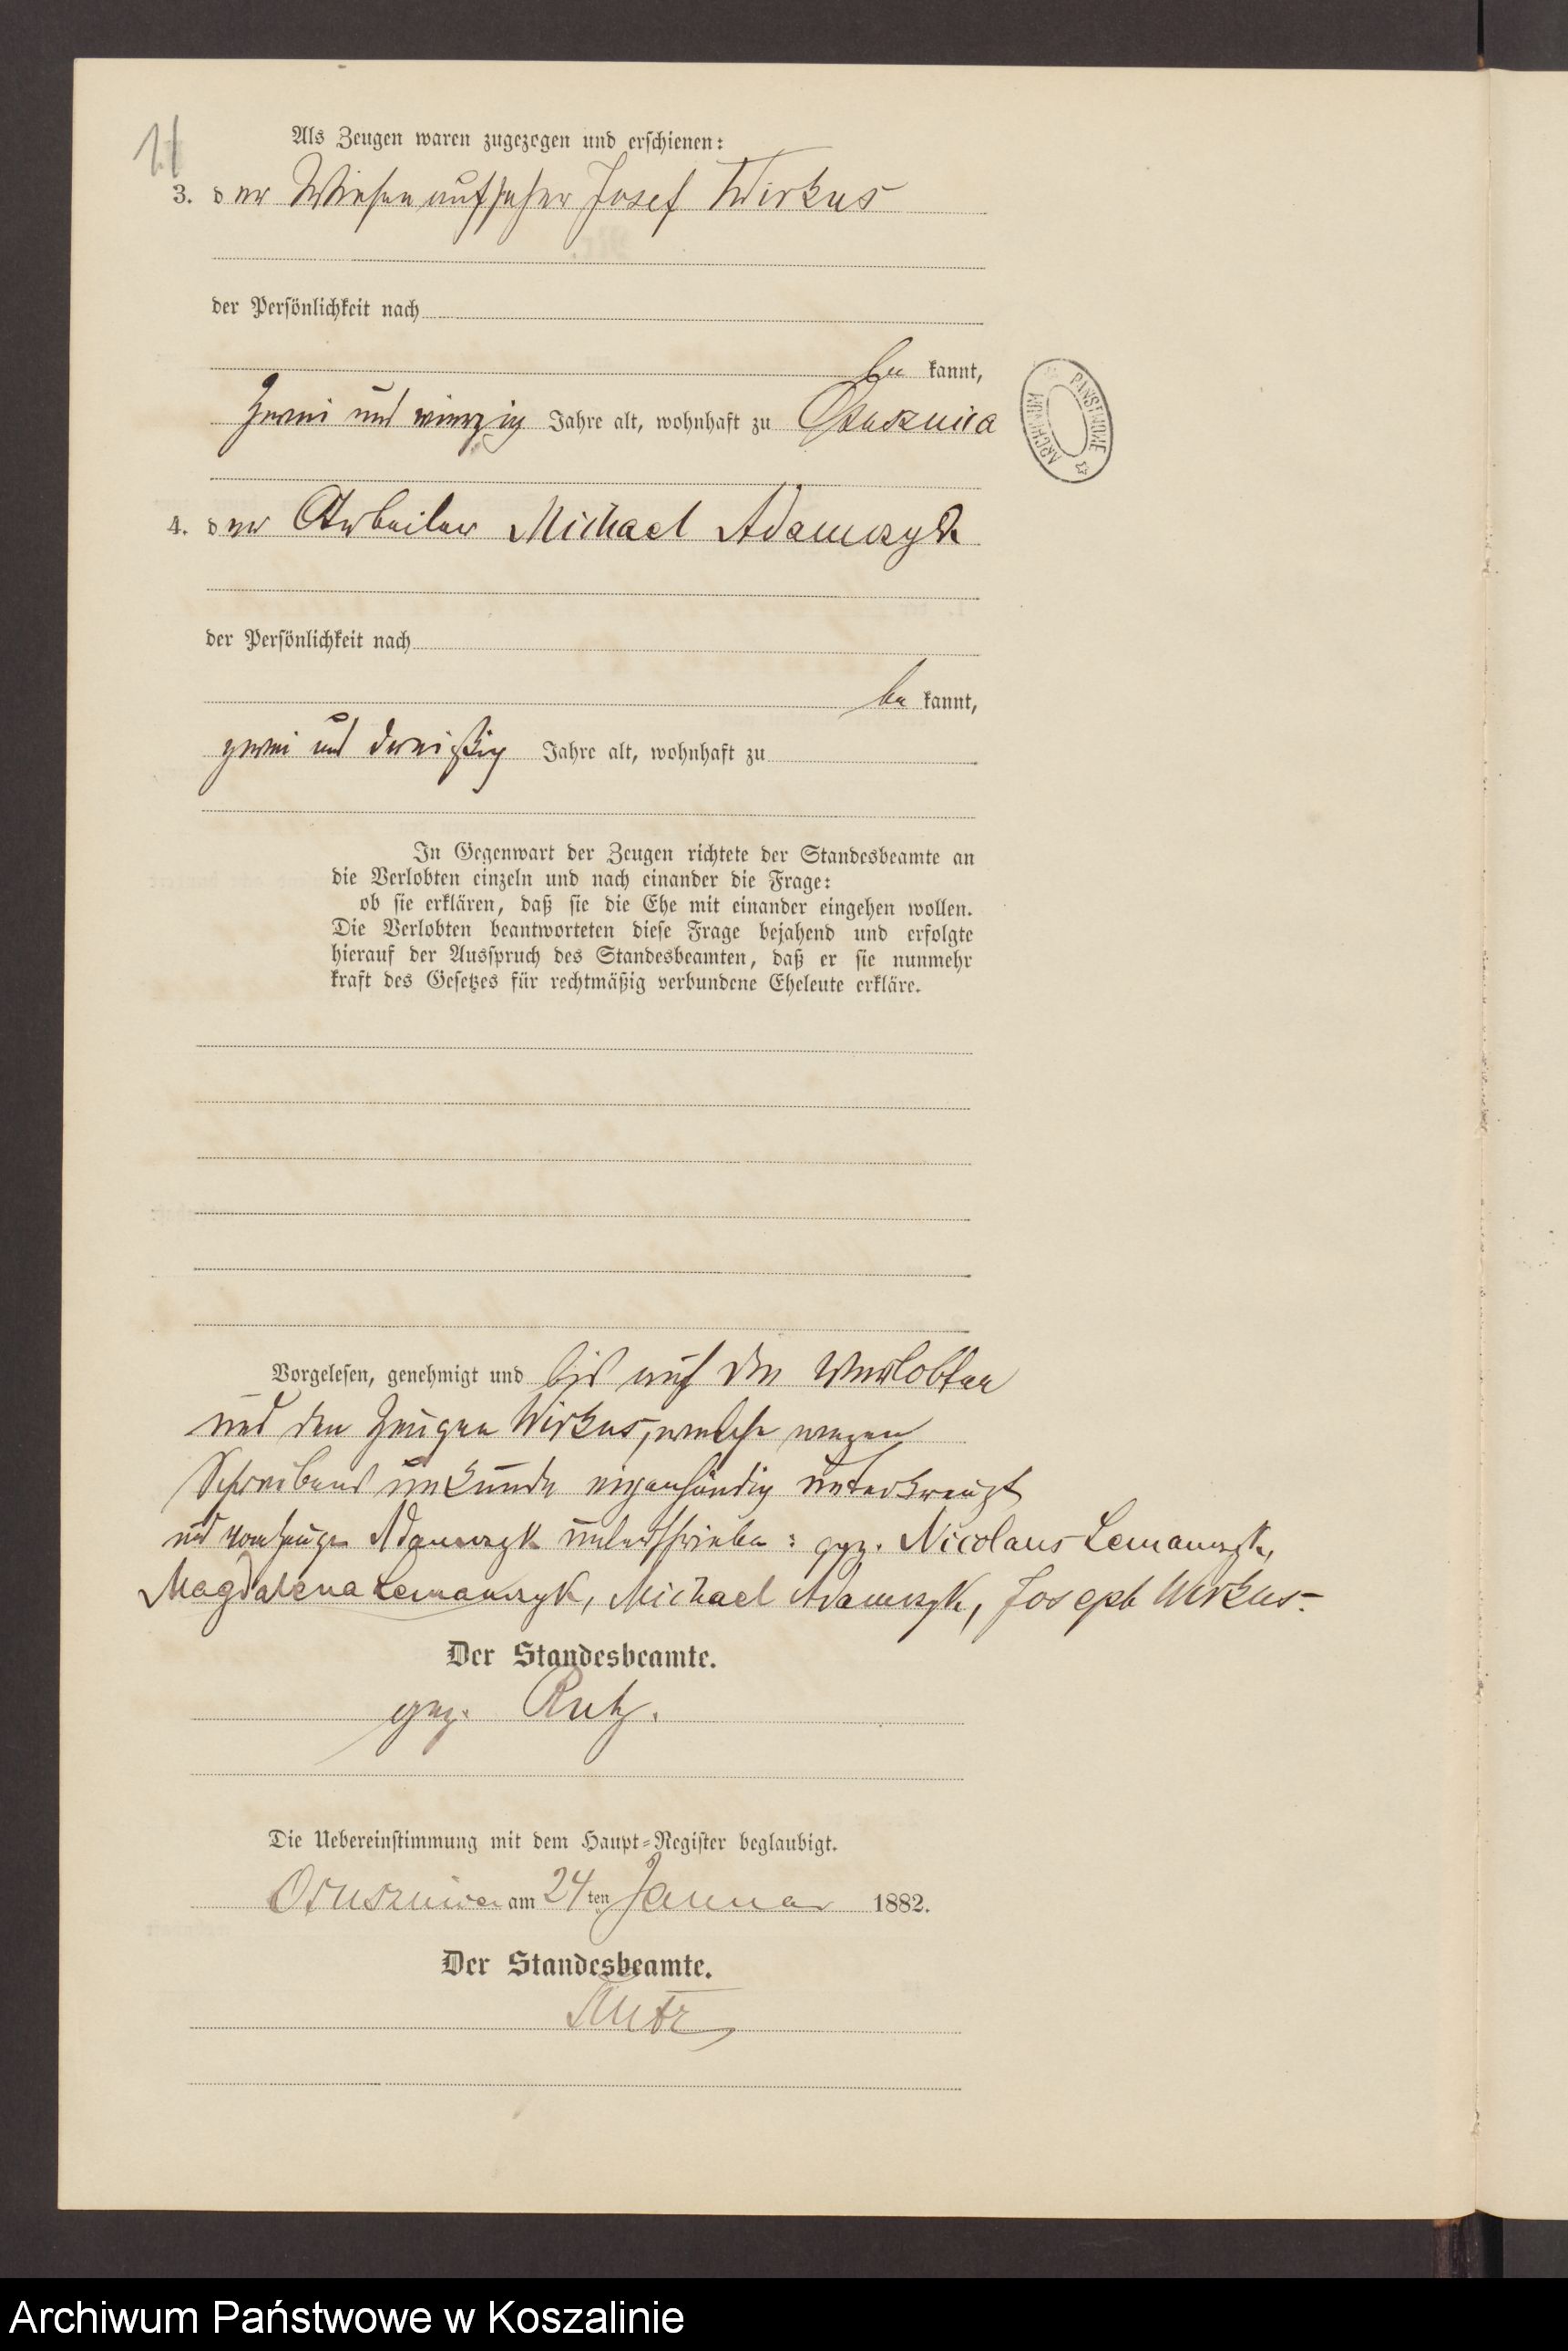 11
Als Zeugen waren zugezogen und erschienen:
3. der Wiesenaufseher Josef Wirkus
der Persönlichkeit nach
be kannt,
zwei und vierzig Jahre alt, wohnhaft zu Ossusznica
ARCHIWUM PAŃSTWOWE
4. der Arbeiter Michael Adamczyk
der Persönlichkeit nach
be kannt,
zwei und dreißig Jahre alt, wohnhaft zu
In Gegenwart der Zeugen richtete der Standesbeamte an
die Verlobten einzeln und nach einander die Frage:
ob sie erklären, daß sie die Ehe mit einander eingehen wollen.
Die Verlobten beantworteten diese Frage bejahend und erfolgte
hierauf der Ausspruch des Standesbeamten, daß er sie nunmehr
kraft des Gesetzes für rechtmäßig verbundene Eheleute erkläre.
Vorgelesen, genehmigt und bis auf den Verlobten
und den Zeugen Wirkus, welche wegen
Schreibensunkunde eigenhändig unterkreuzt
und vom Zeugen Adamczyk unterschrieben: gez. Nicolaus Lemanczyk,
Magdalena Lemanczyk, Michael Adamczyk, Joseph Wirkus.
Der Standesbeamte.
gez. Rutz.
Die Uebereinstimmung mit dem Haupt-Register beglaubigt.
Osusznica am 24 ten Januar 1882.
Der Standesbeamte.
Rutz
Archiwum Państwowe w Koszalinie